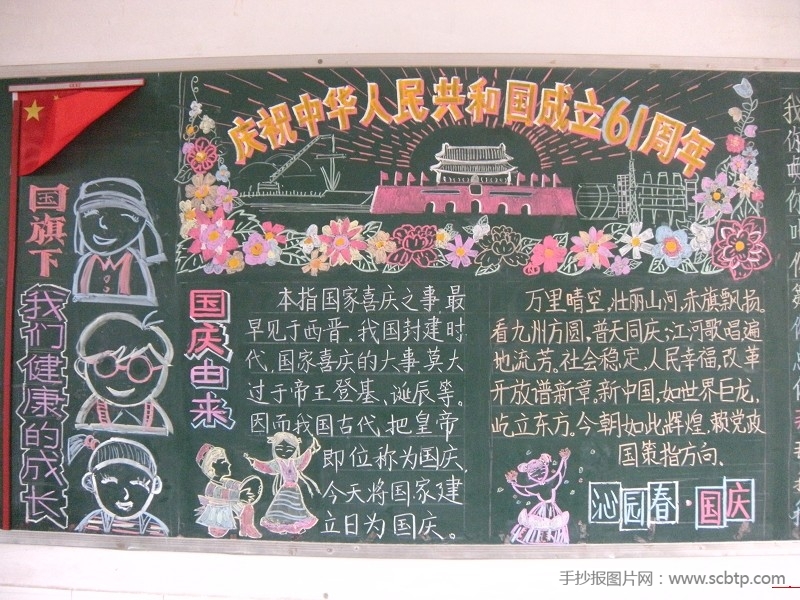 庆祝中华人民共和国成立61周年
国旗下
我们健康的成长
国庆由来
本指国家喜庆之事最
早见于西晋。我国封建时
代,国家喜庆的大事莫大
过于帝王登基、诞辰等。
因而我国古代,把皇帝
即位称为国庆.
今天将国家建
立日为国庆。
万里晴空,壮丽山河,赤旗飘损。
看九州方圆,普天同庆;江河歌唱遍
地流芳。社会稳定,人民幸福,改革
开放谱新章。新中国,如世界巨龙,
屹立东方。今朝如此辉煌,赖党政
国策指方向.
沁园春·国庆
手抄报图片网:www.scbtp.com